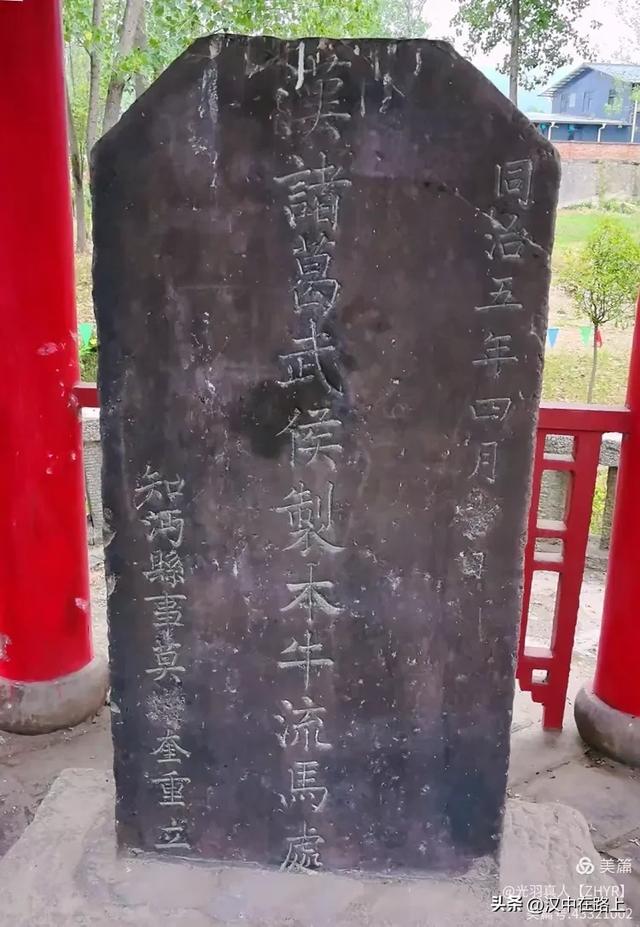 同治五年四月日
漢諸葛武侯製本牛流馬處
知沔縣事莫奎重立
美篇
@光羽真人【ZHYR】
头条 @汉中在路上
43321002